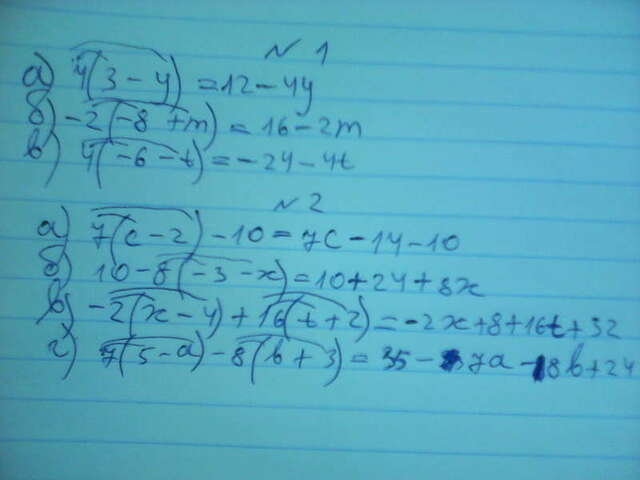 № 1
а) 4(3 - y) = 12 - 4y
б) -2(-8 + m) = 16 - 2m
в) 4(-6 - t) = -24 - 4t
№ 2
а) 7(c - 2) - 10 = 7c - 14 - 10
б) 10 - 8(-3 - x) = 10 + 24 + 8x
в) -2(x - 4) + 16(t + 2) = -2x + 8 + 16t + 32
г) 7(5 - a) - 8(b + 3) = 35 - 7a - 8b + 24